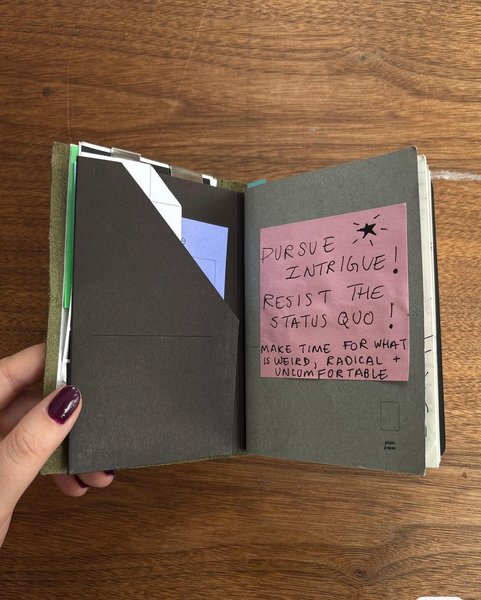 PURSUE
INTRIGUE!
RESIST THE
STATUS QUO!
MAKE TIME FOR WHAT
IS WEIRD, RADICAL +
UNCOMFORTABLE
plain
paper